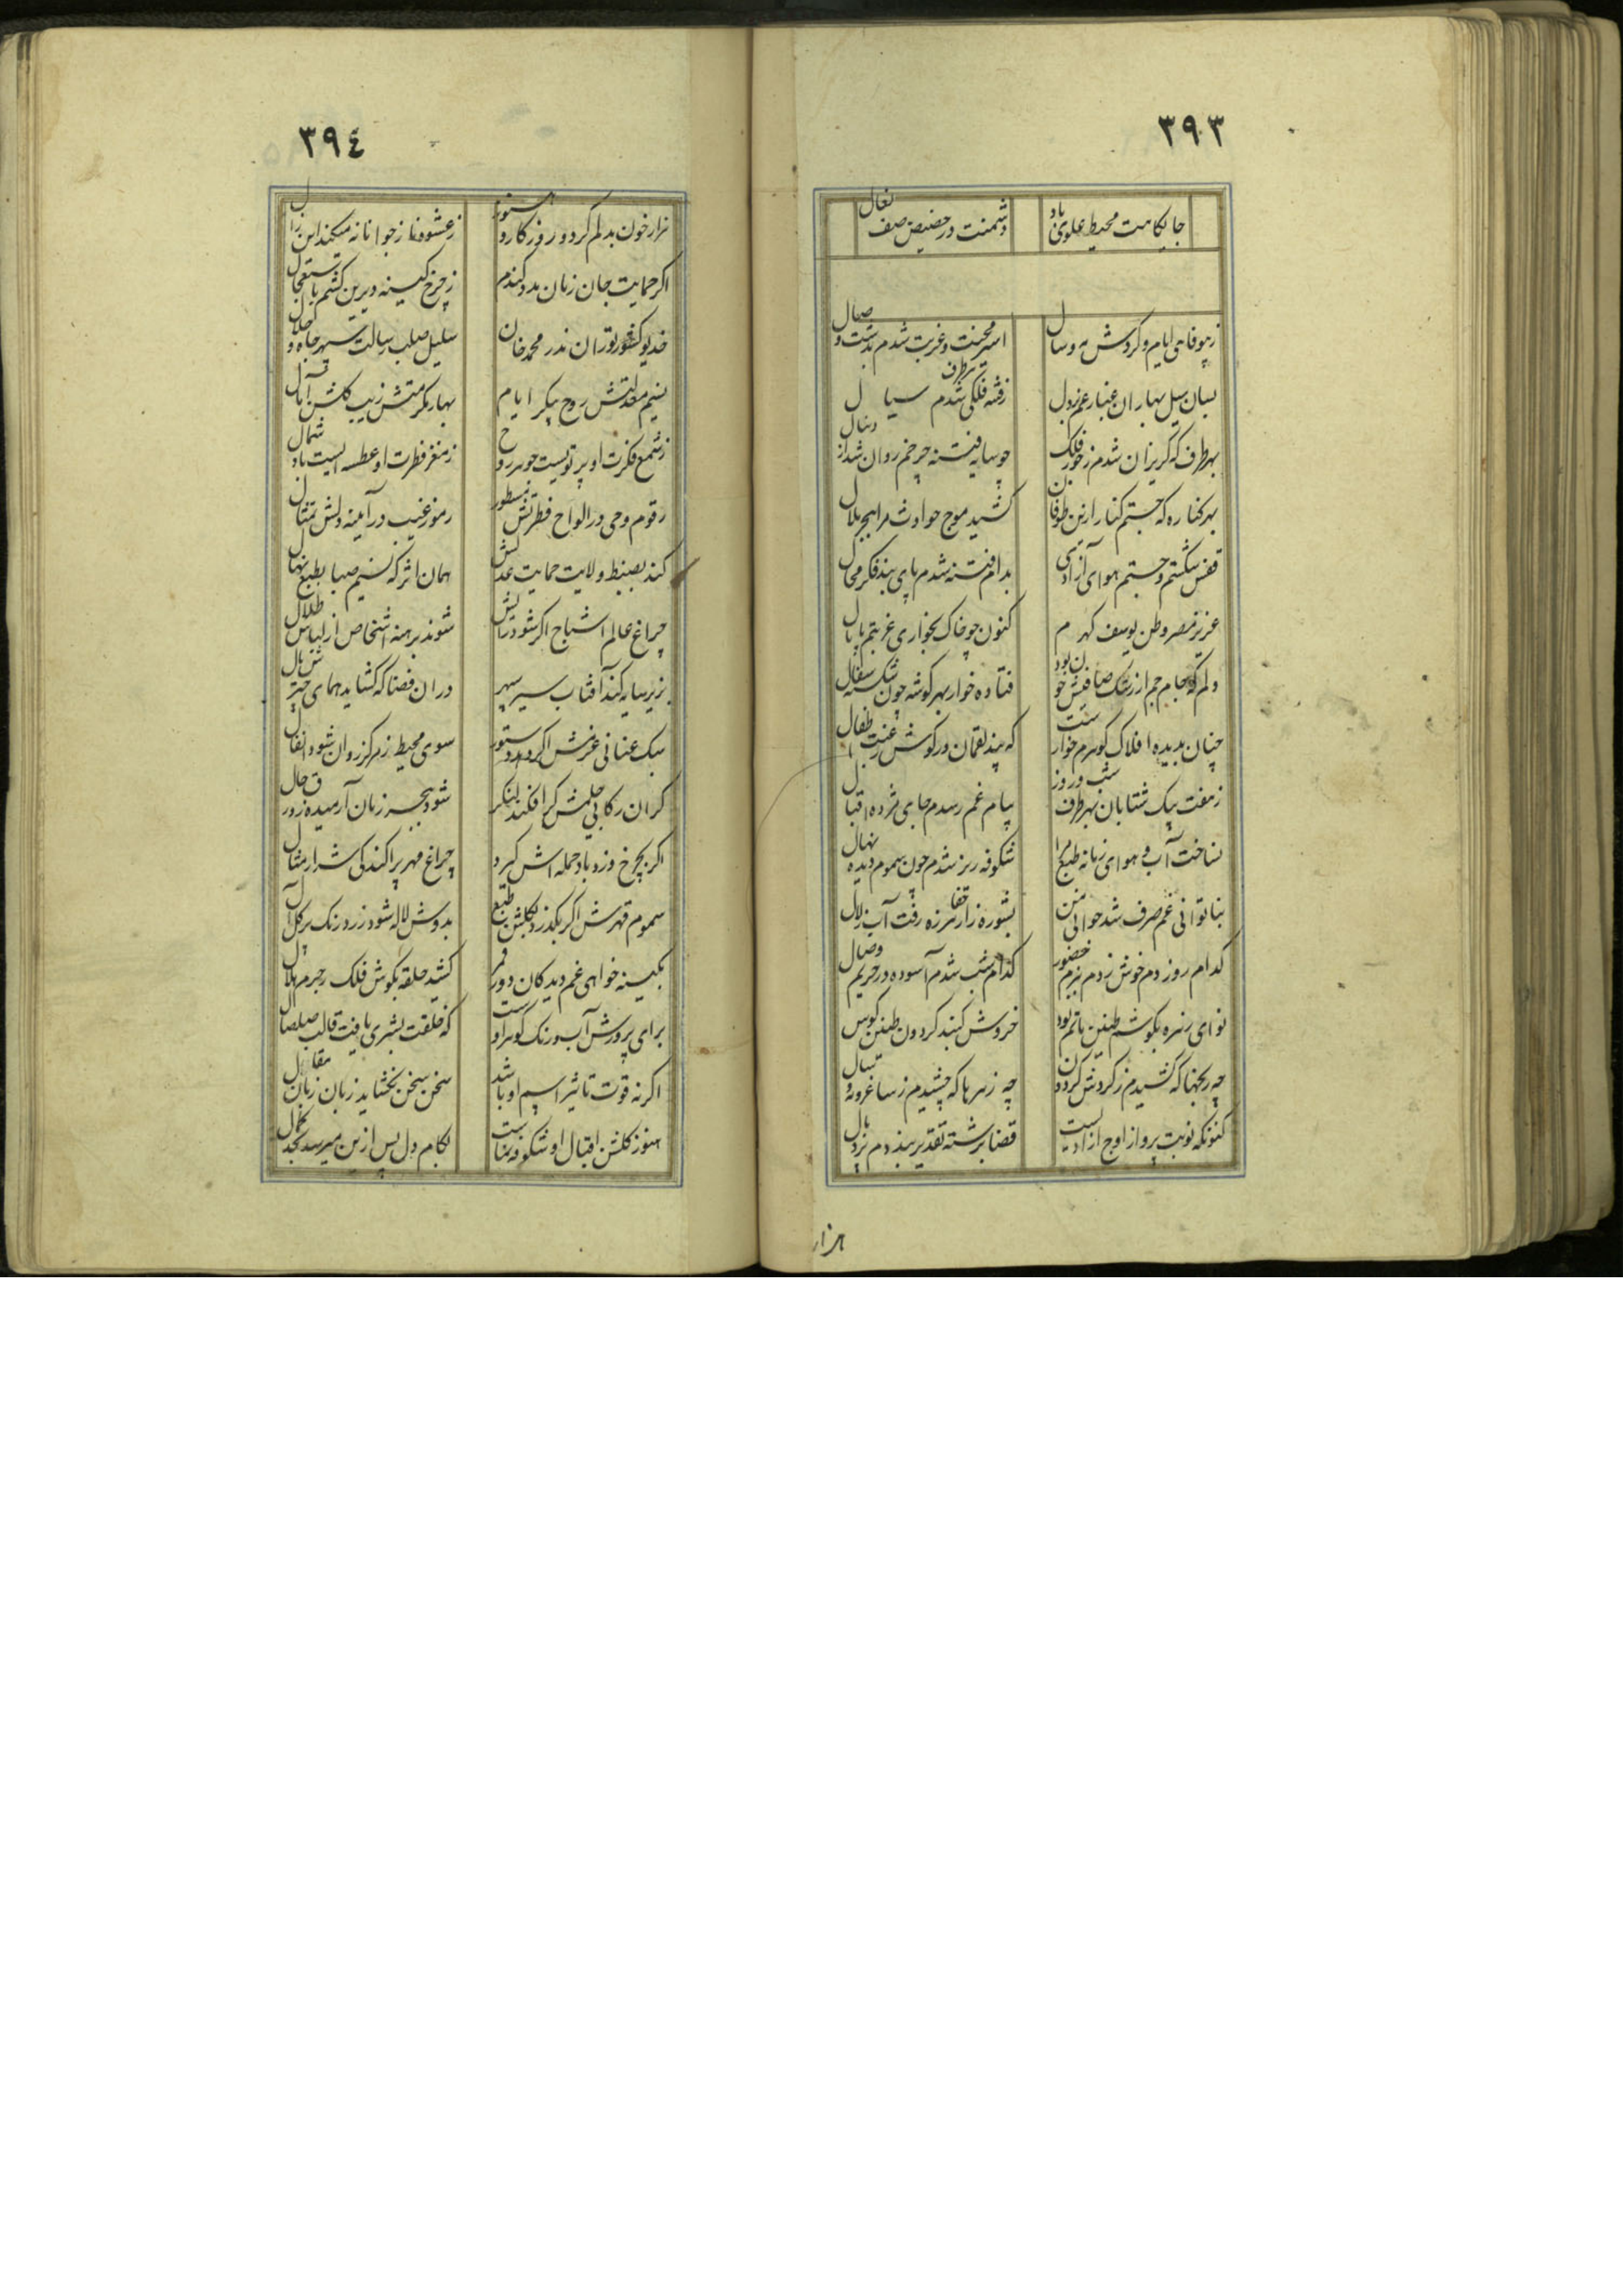 ٣٩٣
جایگاهت محیط علوی باد
دشمنت در حضیض صف نعال
ز بیوفایی ایام و گردش مه و سال
اسیر محنت و غربت شدم بدشت و
بسان سیل بهاران غبار غم بر دل
ز فتنه فلکی شدم بهر طرف سیال
بهر طرف که گریزان شدم ز جور فلک
چو سایه فتنه چرخم روان شد از دنبال
بهر کناره که جستم کنار ازین طوفان
کشید موج حوادث مرا ببحر ملال
قفس شکستم و جستم هوای آزادی
بدام فتنه شدم پای بند فکر محال
عزیز مصر وطن یوسف کهرم
کنون چو خاک بخواری غربتم پامال
دلم که جام جم از رشک صافیش خون بود
فتاده خوار بهر گوشه چون شکسته سفال
چنان بدیده افلاک گوهرم خوارست
که پند لقمان در گوش رغبت اطفال
ز هفت پیک شتابان بهر طرف شب و روز
پیام غم رسدم جای مژده اقبال
نساخت آب و هوای زمانه طبع مرا
شکوفه ریز شدم چون سموم دیده نهال
بناتوانی غم صرف شد جوانی من
بشوره زار قفا هرزه رفت آب زلال
کدام روز دم خوش زدم ببزم حضور
کدام شب شدم آسوده در حریم وصال
نوای زهره بگوشم طنین ماتم بود
خروش گنبد گردون طنین کوس
چه رنجها که کشیدم ز گردش گردون
چه زهرها که چشیدم ز ساغر مه و سال
کنونکه نوبت پرواز اوج آزادیست
قضا برشته تقدیر بنددم پر و بال
هزار
٣٩٤
هزار خون بدلم کرد روزگار و هنوز
ز عشوه ناز جوانانه میکند این زال
اگر حمایت جان زمان مدد کندم
ز چرخ کینه دیرین کشم باستعجال
خدیو کشور توران ندر محمد خان
سلیل صلب رسالت سپهر جاه و جلال
نسیم معدلتش روح پیکر ایام
بهار مکرمتش زیب گلشن آمال
ز شمع فکرت او پرتویست جوهر روح
ز مغز فطرت او عطسه ایست باد شمال
رقوم وحی در الواح فطرتش مسطور
رموز غیب در آیینه دلش تمثال
کند بضبط ولایت حمایت عدلش
همان اثر که نسیم صبا بطبع نهال
چراغ عالم اشباح اگر شود رایش
شوند برهنه اشخاص از لباس ظلال
بزیر سایه کند آفتاب سیر سپهر
در آن فضا که گشاید همای چترش بال
سبک عنانی عزمش اگر دهد دستور
سوی محیط ز مرکز روان شود اثقال
گران رکابی حلمش گر افکند لنگر
شود بحیز زمان آرمیده زورق حال
اگر بچرخ وزد باد حمله اش گیرد
چراغ مهر پراکندگی شرار مثال
سموم قهرش اگر بگذرد بگلشن طبع
بدوش لاله شود زرد رنگ بر گل آل
بکینه خواهی غم دیدگان دور قمر
کشید حلقه بگوش فلک ز جرم هلال
برای پرورش آب و رنگ گوهر اوست
که خلقت بشری یافت قالب صلصال
اگر نه قوت تاثیر اسم او باشد
سخن سخن نگشاید زبان زبان مقال
هنوز گلشن اقبال او شکوفه نماست
بکام دل پس ازین میرسد بحد کمال